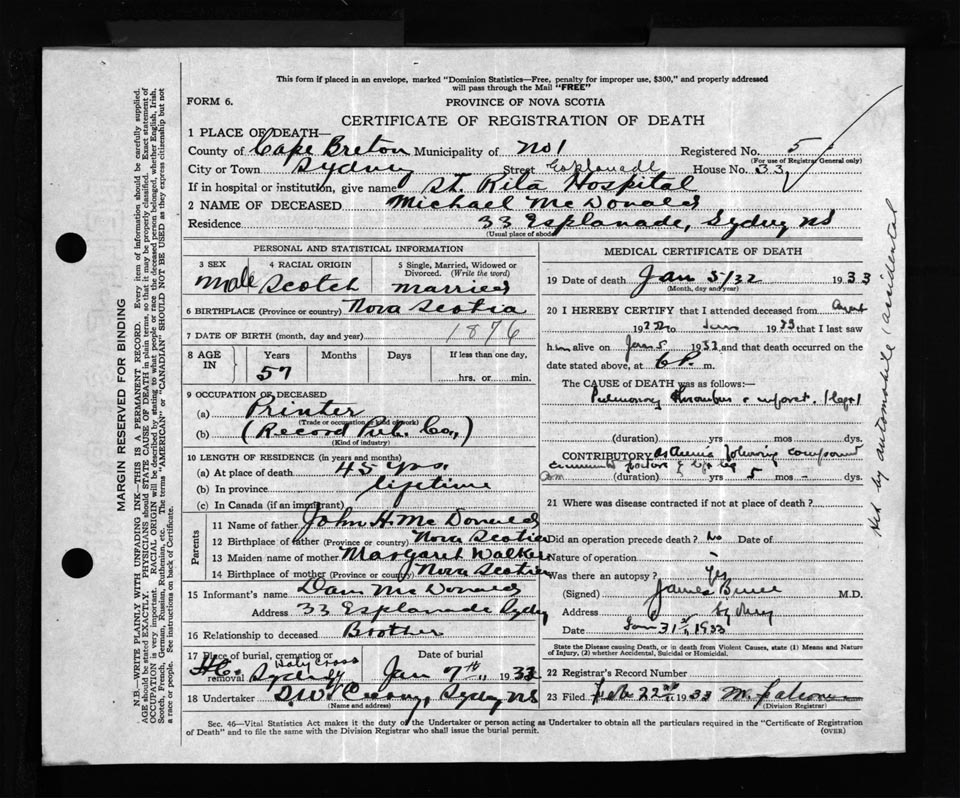 This form if placed in an envelope, marked "Dominion Statistics—Free, penalty for improper use, $300," and properly addressed
will pass through the Mail "FREE"
FORM 6.
PROVINCE OF NOVA SCOTIA
CERTIFICATE OF REGISTRATION OF DEATH
1 PLACE OF DEATH—
County of Cape Breton Municipality of No 1 Registered No. 5
(For use of Registrar General only)
City or Town Sydney Street House No. 33
If in hospital or institution, give name St. Rita Hospital
2 NAME OF DECEASED Michael McDonald
Residence 33 Esplanade, Sydney, NS
(Usual place of abode)
PERSONAL AND STATISTICAL INFORMATION
3 SEX
Male
4 RACIAL ORIGIN
Scotch
5 Single, Married, Widowed or
Divorced. (Write the word)
Married
6 BIRTHPLACE (Province or country) Nova Scotia
7 DATE OF BIRTH (month, day and year) 1876
8 AGE
IN
Years
57
Months
Days
If less than one day,
hrs. or min.
9 OCCUPATION OF DECEASED
(a) Printer
(Trade or occupation or kind of work)
(b) (Record Pub. Co.,)
(Kind of industry)
10 LENGTH OF RESIDENCE (in years and months)
(a) At place of death 45 yrs.
(b) In province lifetime
(c) In Canada (if an immigrant)
Parents
11 Name of father John H. McDonald
12 Birthplace of father (Province or country) Nova Scotia
13 Maiden name of mother Margaret Walker
14 Birthplace of mother (Province or country) Nova Scotia
15 Informant's name Dan McDonald
Address 33 Esplanade Sydney
16 Relationship to deceased Brother
17 Place of burial, cremation or
removal Holy Cross Sydney
Date of burial
Jan 7th, 1933
18 Undertaker Sydney NS
(Name and address)
MEDICAL CERTIFICATE OF DEATH
19 Date of death Jan 5/32 1933
(Month, day and year)
20 I HEREBY CERTIFY that I attended deceased from
19 to 1933 that I last saw
him alive on Jan 5 1933 and that death occurred on the
date stated above, at 6 P. m.
The CAUSE of DEATH was as follows:—
Pulmonary thrombus & infarct. (legs)
(duration) yrs mos dys.
CONTRIBUTORY following compound
(duration) yrs 5 mos - dys.
21 Where was disease contracted if not at place of death?
Did an operation precede death? No Date of
Nature of operation -
Was there an autopsy? Yes
(Signed) James Bruce M.D.
Address Sydney
Date Jan 31st, 1933
State the Disease causing Death, or in death from Violent Causes, state (1) Means and Nature
of Injury, (2) whether Accidental, Suicidal or Homicidal.
22 Registrar's Record Number
23 Filed Feb 22nd 1933
(Division Registrar)
Sec. 46—Vital Statistics Act makes it the duty of the Undertaker or person acting as Undertaker to obtain all the particulars required in the "Certificate of Registration
of Death" and to file the same with the Division Registrar who shall issue the burial permit.
(OVER)
MARGIN RESERVED FOR BINDING
N.B.—WRITE PLAINLY WITH UNFADING INK—THIS IS A PERMANENT RECORD. Every item of information should be carefully supplied.
AGE should be stated EXACTLY. PHYSICIANS should STATE CAUSE OF DEATH in plain terms, so that it may be properly classified. Exact statement of
OCCUPATION is very important. RACIAL ORIGIN will be described by stating to what people or race the deceased person belonged, whether English, Irish,
Scotch, French, German, Russian, Ruthenian, etc. The terms "AMERICAN" or "CANADIAN" SHOULD NOT BE USED as they express citizenship but not
a race or people. See instructions on back of Certificate.
Hit by automobile (accidental